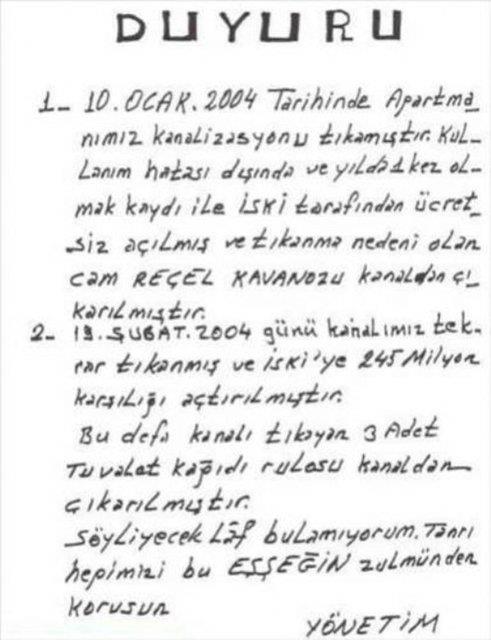 DUYURU
1- 10.OCAK.2004 Tarihinde Apartma_
nımız kanalizasyonu tıkamıştır. Kul-
Lanım hatası dışında ve yılda 1 kez ol-
mak kaydı ile İSKİ tarafından ücret_
siz açılmış ve tıkanma nedeni olan
cam REÇEL KAVANOZU kanaldan çı_
karılmıştır.
2- 19.ŞUBAT.2004 günü kanalımız tek-
rar tıkanmış ve iski'ye 245 Milyon
karşılığı açtırılmıştır.
Bu defa kanalı tıkayan 3 Adet
Tuvalet kağıdı rulosu kanaldan
çıkarılmıştır.
Söyliyecek Lâf bulamıyorum. Tanrı
hepimizi bu EŞŞEĞİN zulmünden
korusun
YÖNETİM